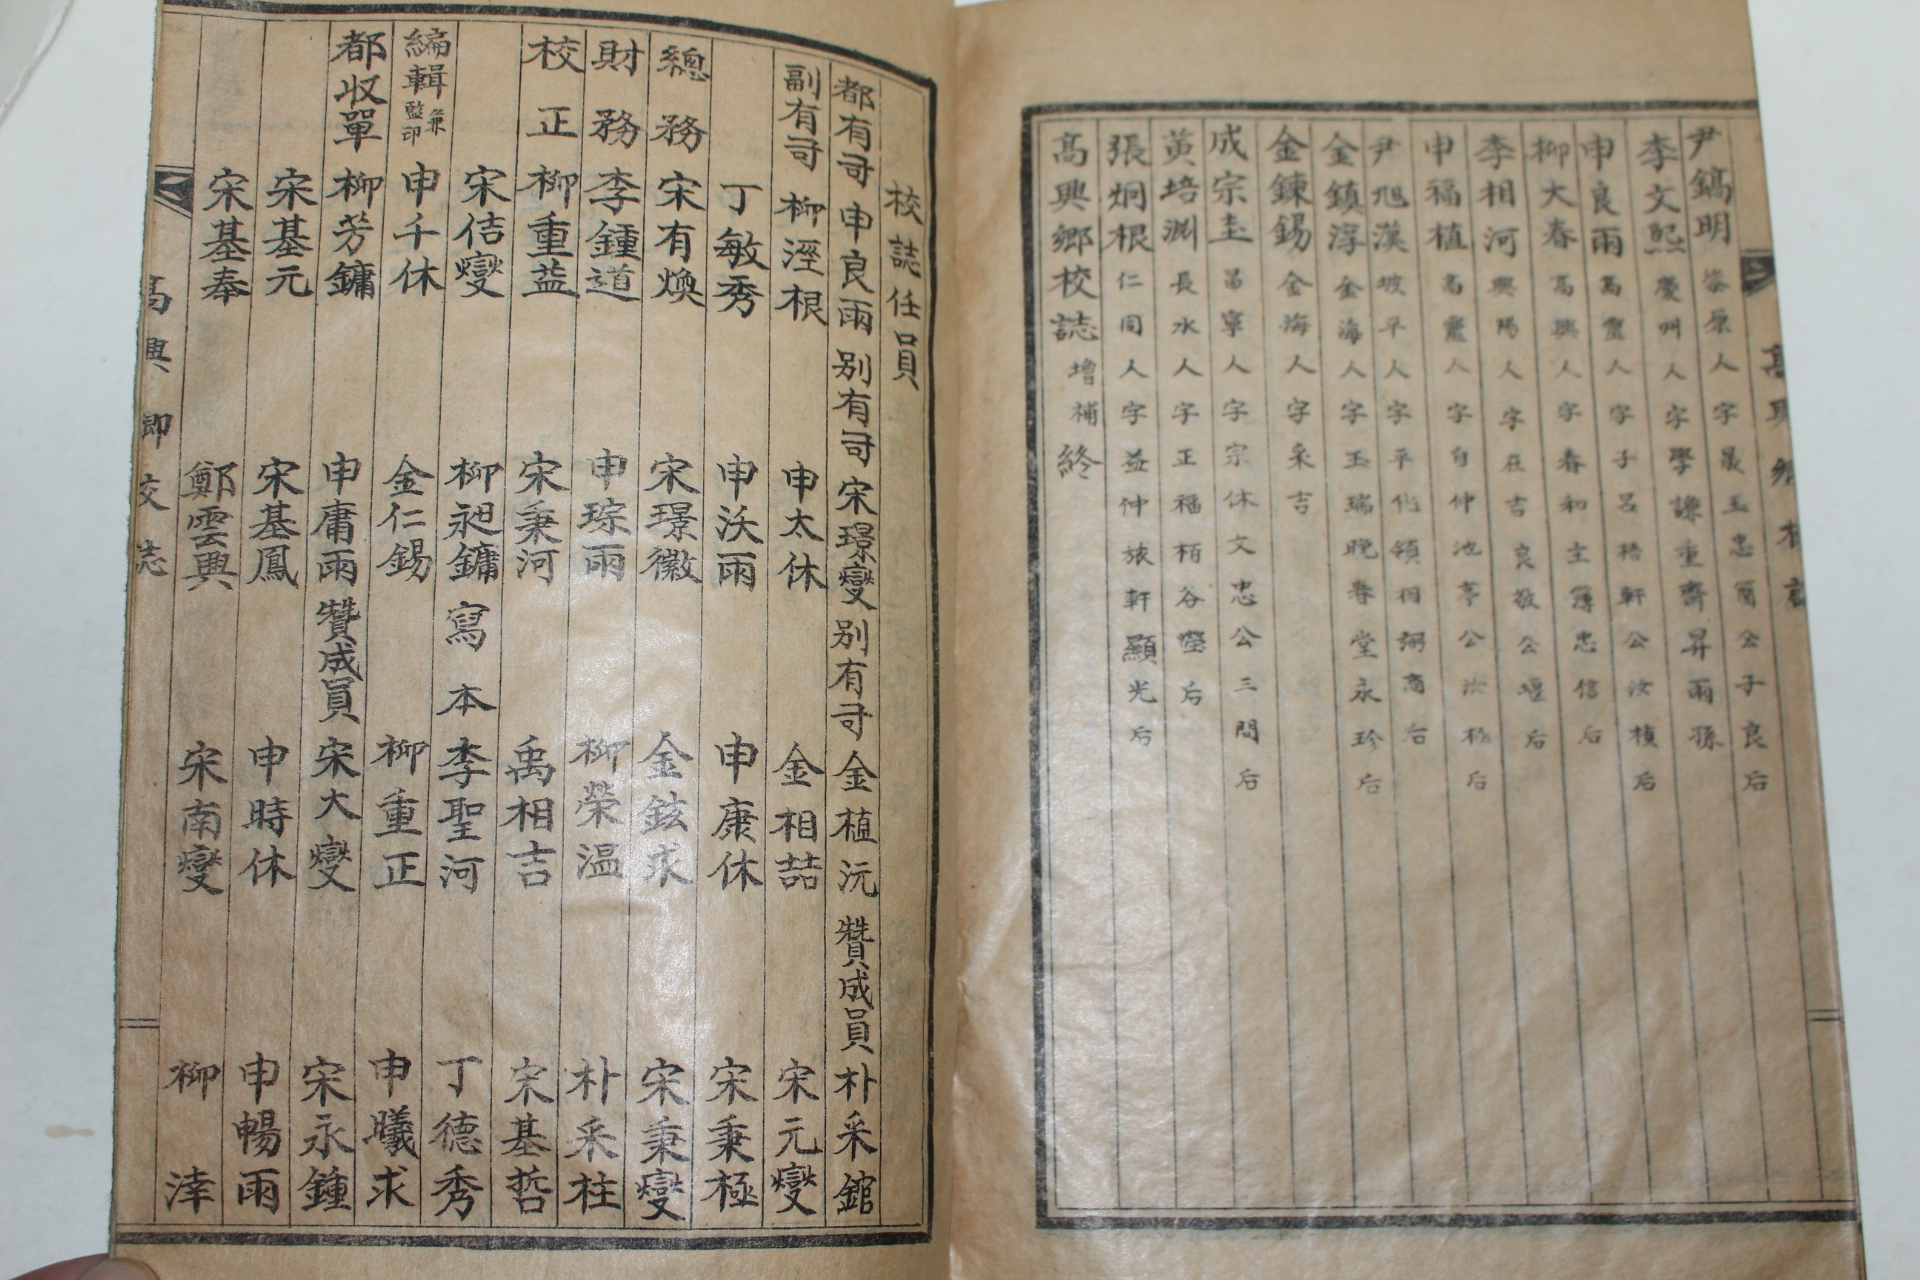 尹鎬明 恭原人字晟玉忠簡公子良后
李文熙 慶州人字學謙重齋昇雨孫
申良雨 高靈人字子呂梧軒公汝楨后
柳大春 高興人字春和主簿忠信后
李相河 興陽人字在吉良敬公堰后
申福植 高靈人字自仲池亭公汝極后
尹旭漢 坡平人字平化領相弼商后
金鎮淳 金海人字玉瑞晩春堂永珍后
金鍊錫 金海人字采吉
成宗圭 昌寧人字宗休文忠公三問后
黃培淵 長水人字正福栢谷瑩后
張炯根 仁同人字益仲旅軒顯光后
高興鄉校誌增補終
校誌任員
都有司 申良雨 別有司 宋璟燮 別有司 金植沅 贊成員 朴采錧
副有司 柳瀅根 申太休 金相喆 宋元燮
丁敏秀 申沃雨 申康休 宋秉極
總務 宋有煥 宋璟徽 金鉉求 宋秉燮
財務 李鍾道 申琮雨 柳榮温 朴采柱
校正 柳重益 宋秉河 禹相吉 宋基哲
宋佶燮 柳昶鏞 寫本 李聖河 丁德秀
編輯兼監印 申千休 金仁錫 柳重正 申曦求
都収單 柳芳鏞 申庸雨 贊成員 宋大燮 宋永鍾
宋基元 宋基鳳 申時休 申暢雨
宋基奉 鄭雲興 宋南燮 柳涬
高興鄉校誌